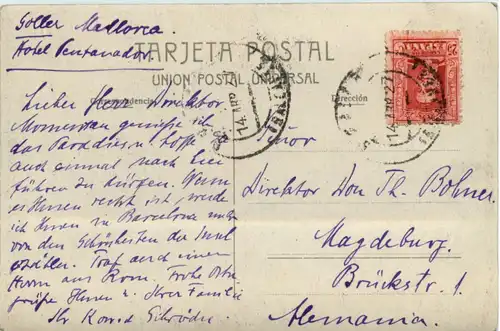 Soller Mallorca
Hotel
TARJETA POSTAL
UNION POSTAL UNIVERSAL
Correspondencia
Dirección
Lieber Herr Direktor
Momentan genieße ich
das Paradies u. hoffe
auch einmal nach
führen zu dürfen. Wenn
es Ihnen recht ist, werde
ich Ihnen in Barcelona
von den Schönheiten der Insel
erzählen. Traf auch einen
Herrn aus Rom. Frohe
grüße Ihnen u. Ihrer Familie
Ihr Konrad Schröder
Señor
Direktor Don Th. Bohner
Magdeburg.
Brückstr. 1
Alemania.
25
14 ABR 27
14 ABR 27